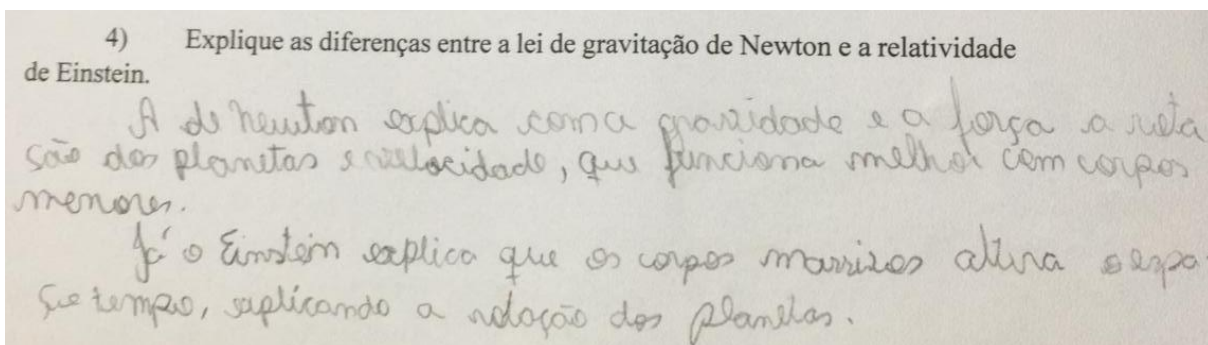 4) Explique as diferenças entre a lei de gravitação de Newton e a relatividade
de Einstein.
A de Newton explica com a gravidade e a força a rota
são dos planetas e velocidade, que funciona melhor com corpos
menores.
Já o Einstein explica que os corpos massizos altera o espa
ço tempo, explicando a rotação dos planetas.